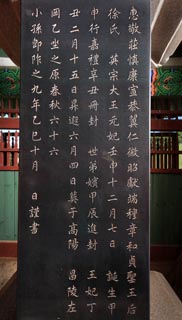 惠敬莊愼康宣恭翼仁徽昭獻端穆章和貞聖王后
徐氏 英宗大王元妃壬申十二月七日 誕生甲
申行嘉禮辛丑冊封 世弟嬪甲辰進封 王妃丁
丑二月十五日昇遐六月四日葬于高陽 昌陵左
岡乙坐之原春秋六十六
小孫卽阼之九年乙巳十月 日謹書